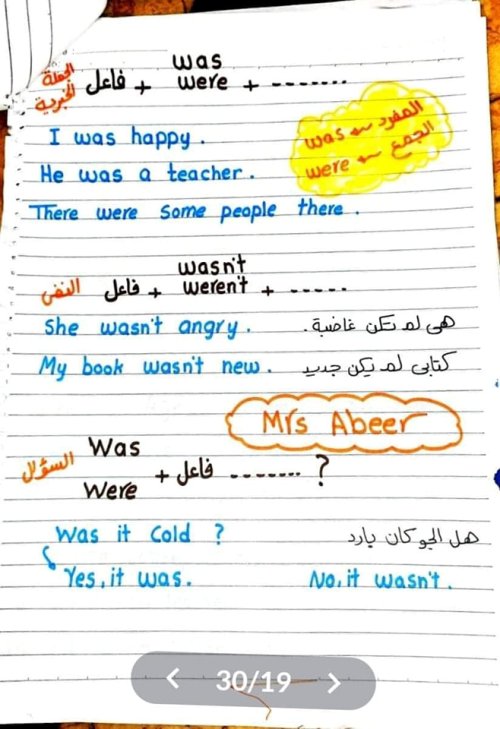 الجملة الخبرية فاعل + was / were + -------
I was happy.
He was a teacher.
was ← المفرد
were ← الجمع
There were some people there.
النفى فاعل + wasn't / weren't + -----
She wasn't angry. هى لم تكن غاضبة.
My book wasn't new. كتابى لم يكن جديد
Mrs Abeer
السؤال Was / Were + فاعل ------- ?
Was it Cold ? هل الجو كان بارد
Yes, it was. No, it wasn't.
30/19